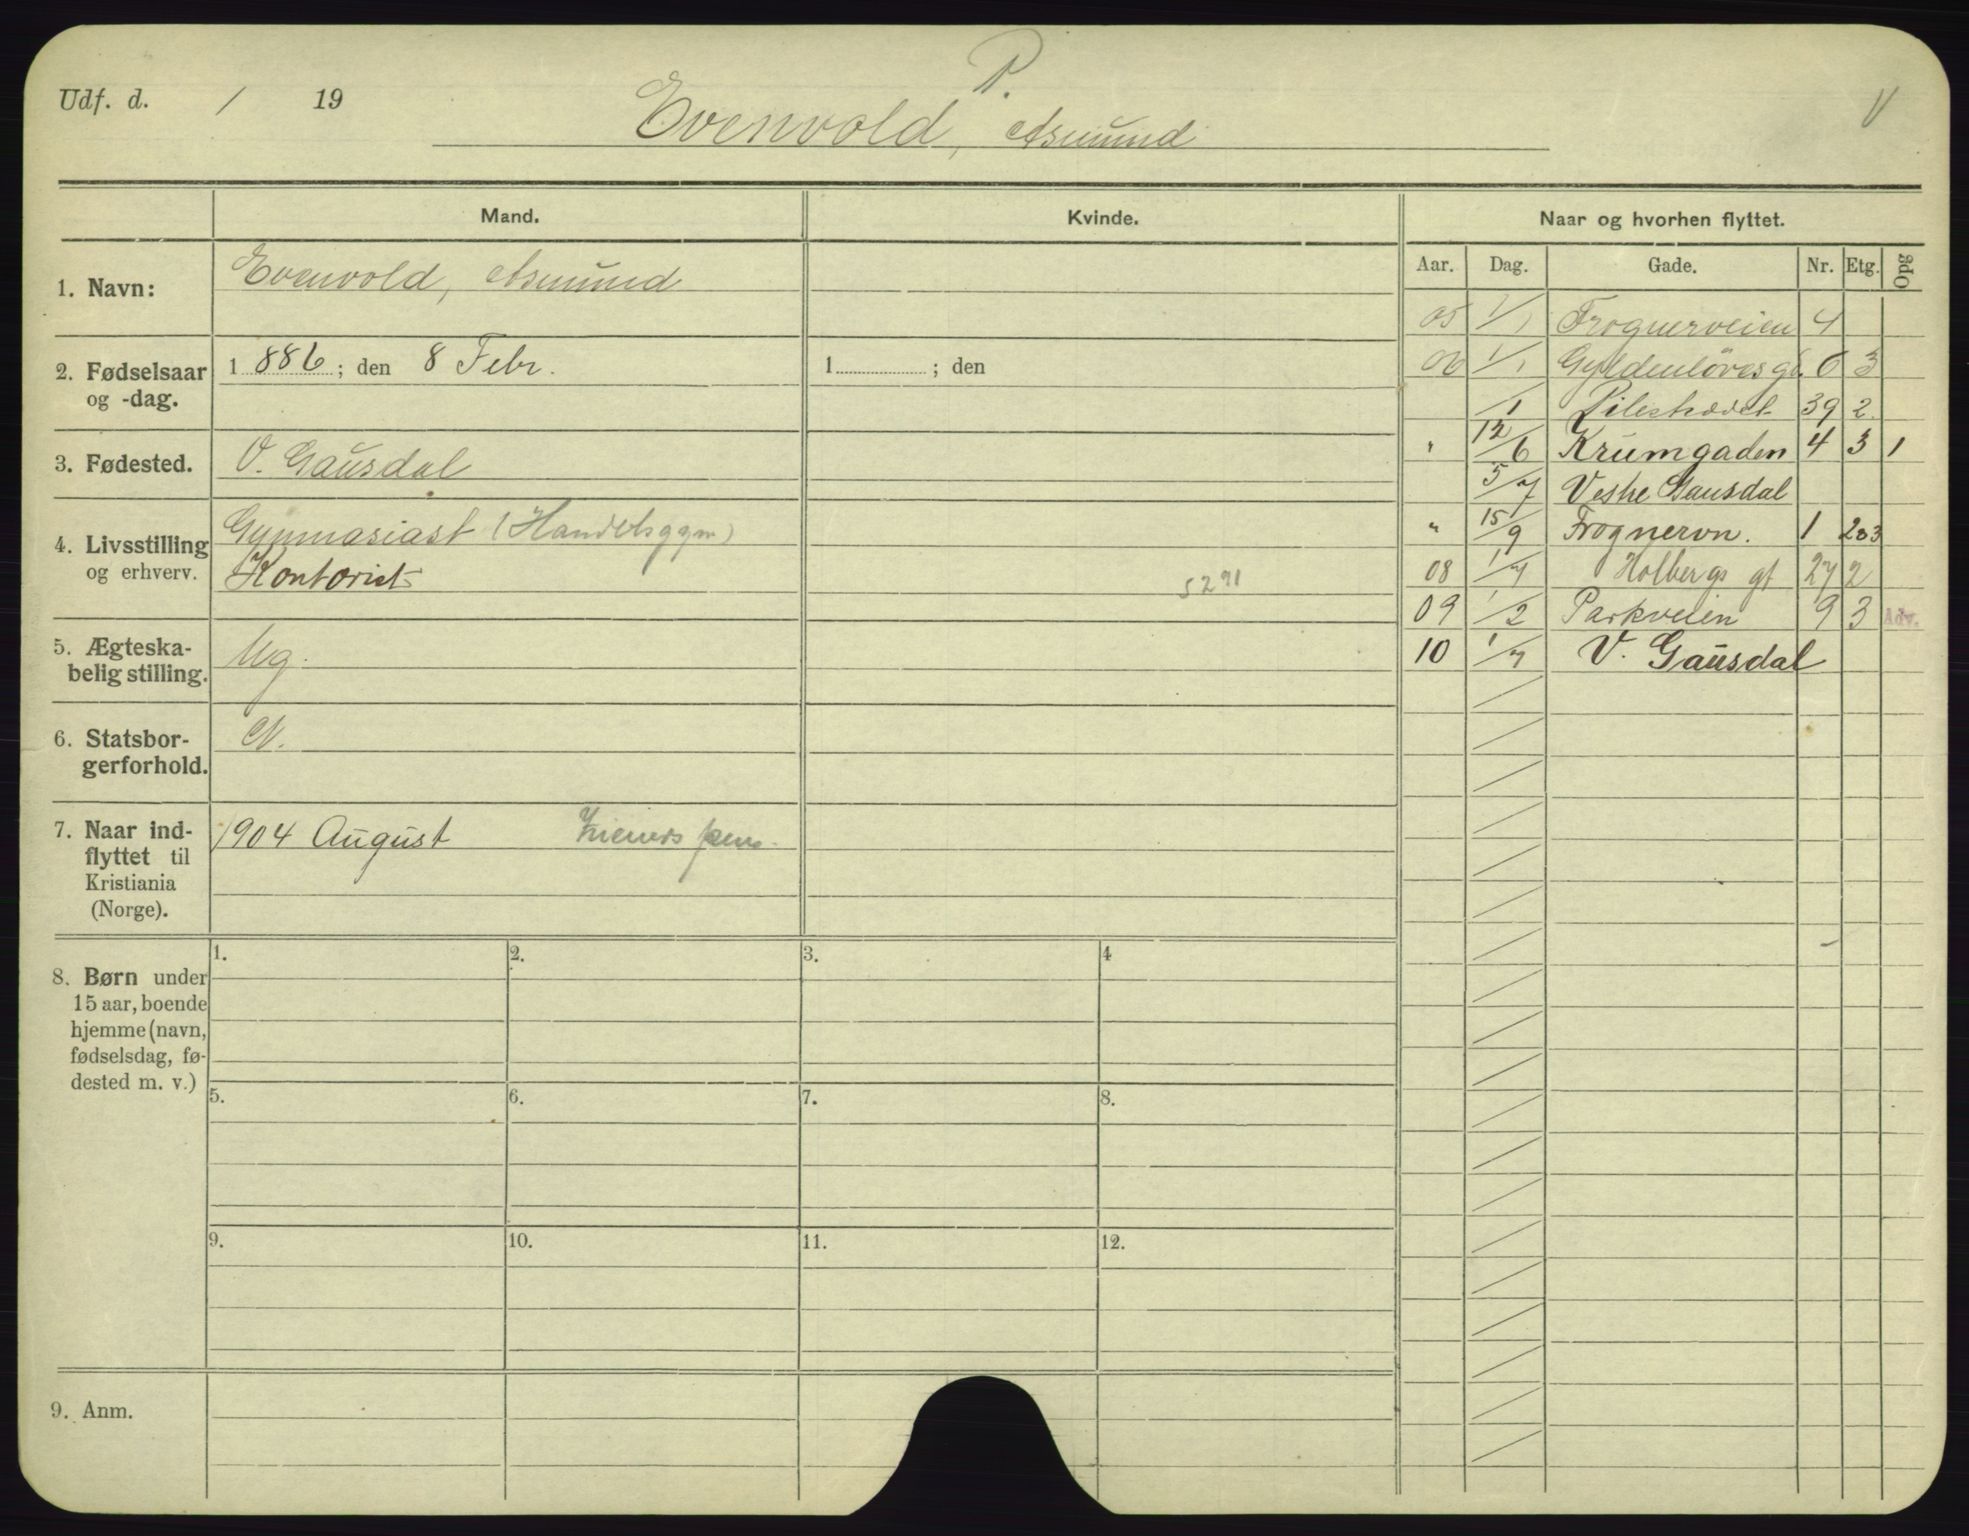 P.
Udf. d. / 19 Evenvold, Asmund V
Mand. Kvinde. Naar og hvorhen flyttet.
Aar. Dag. Gade. Nr. Etg. Opg
1. Navn: Evenvold, Asmund
2. Fødselsaar og -dag. 1 886 ; den 8 Febr. 1 ; den
3. Fødested. V. Gausdal
4. Livsstilling og erhverv. Gymnasiast (Handelsgym)
Kontorist
5291
5. Ægteska-
belig stilling. Ug.
6. Statsbor-
gerforhold. N.
7. Naar ind-
flyttet til
Kristiania
(Norge).
1904 August
8. Børn under
15 aar, boende
hjemme (navn,
fødselsdag, fø-
dested m. v.)
1. 2. 3. 4
5. 6. 7. 8.
9. 10. 11. 12.
9. Anm.
05 1/1 Frognerveien 4
06 1/1 Gyldenløvesgd. 6 3
/1 Pilestrædet 39 2
" 12/6 Krumgaden 4 3 1
5/7 Vestre Gausdal
" 15/9 Frognervn. 1 2o3
08 1/7 Holbergs gt 27 2
09 1/2 Parkveien 9 3 Adv.
10 1/7 V. Gausdal